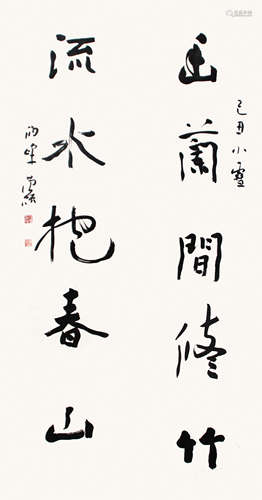 己丑小雪
幽蘭間修竹
流水抱春山